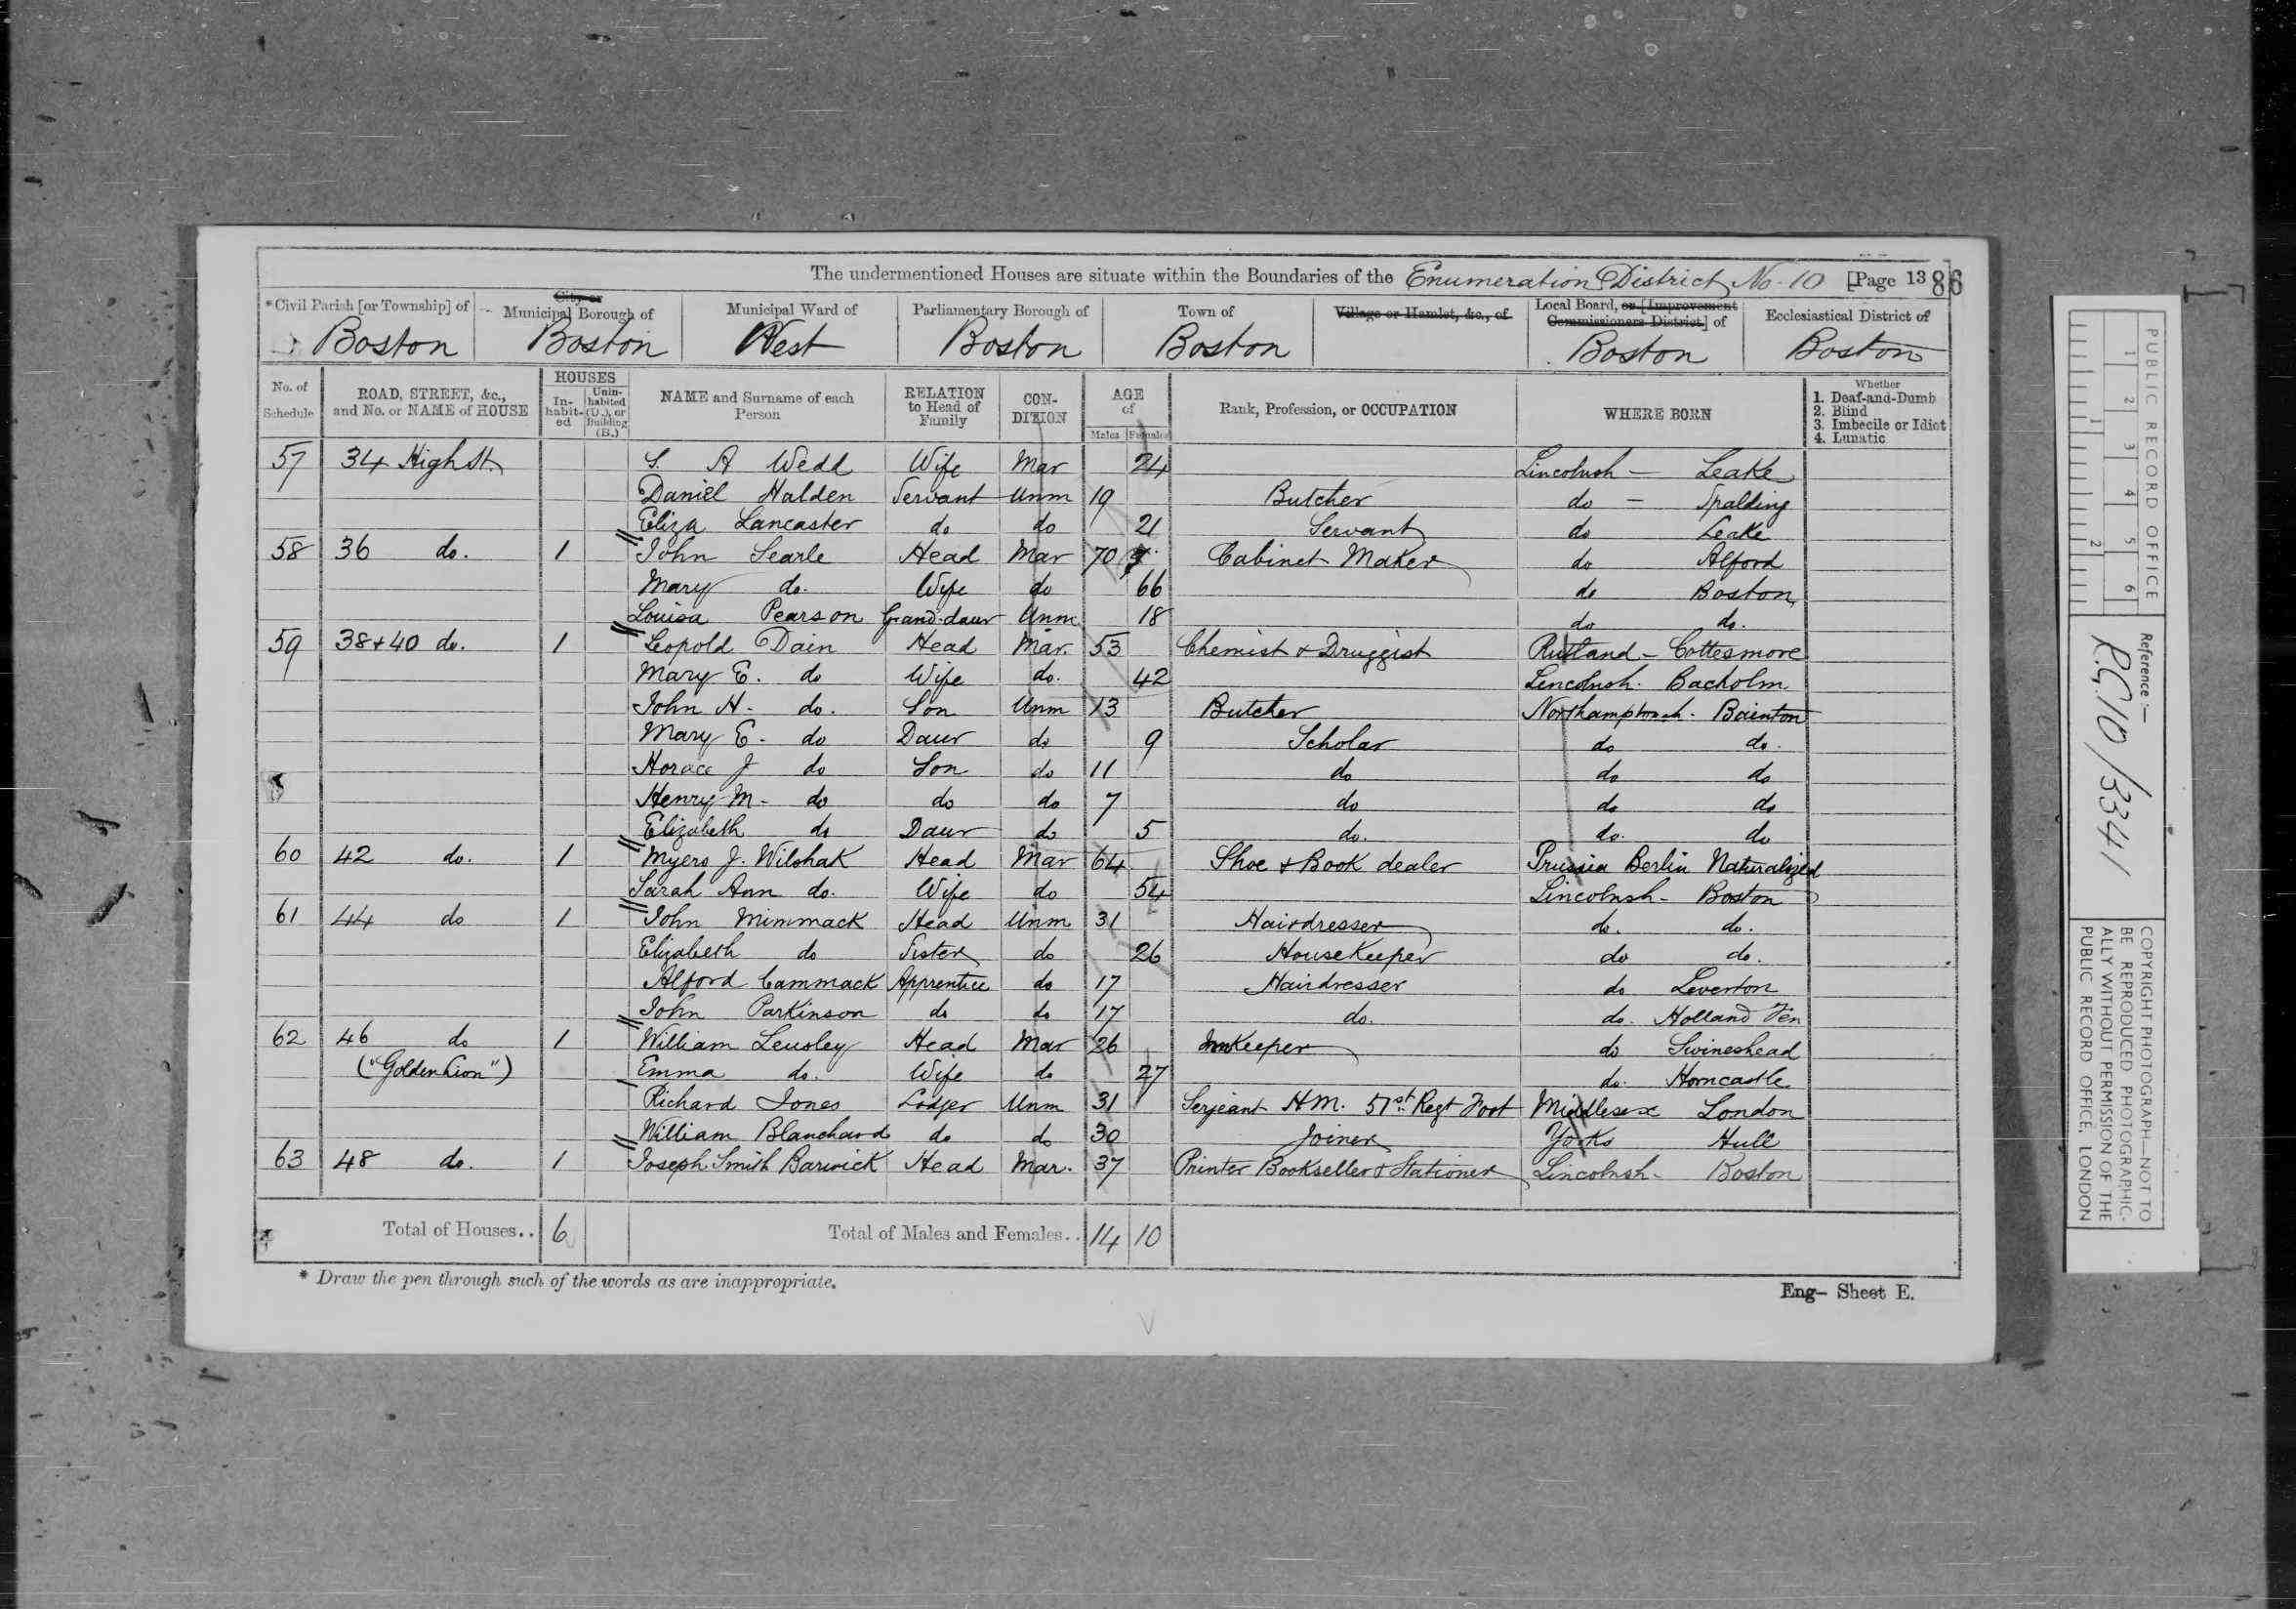 The undermentioned Houses are situate within the Boundaries of the Enumeration District No. 10 [Page 13 86
*Civil Parish [or Township] of City or Municipal Borough of Municipal Ward of Parliamentary Borough of Town of Village or Hamlet, &c., of Local Board, or [Improvement Commissioners District] of Ecclesiastical District of
Boston Boston West Boston Boston Boston Boston
No. of Schedule ROAD, STREET, &c., and No. or NAME of HOUSE HOUSES In-habit-ed Unin-habited (U.), or Building (B.) NAME and Surname of each Person RELATION to Head of Family CON-DITION AGE of Males Females Rank, Profession, or OCCUPATION WHERE BORN Whether 1. Deaf-and-Dumb 2. Blind 3. Imbecile or Idiot 4. Lunatic
57 34 High St. S. A Wedd Wife Mar 24 Lincolnsh - Leake
Daniel Halden Servant Unm 19 Butcher do - Spalding
Eliza Lancaster do do 21 Servant do Leake
58 36 do. 1 John Searle Head Mar 70 Cabinet Maker do Alford
Mary do. Wife do 66 do Boston
Louisa Pearson Grand-daur Unm 18 do do.
59 38+40 do. 1 Leopold Dain Head Mar. 53 Chemist & Druggist Rutland - Cottesmore
Mary E. do Wife do. 42 Lincolnsh. Bacholm
John H. do. Son Unm 13 Butcher Northamptonsh. Bainton
Mary E. do Daur do 9 Scholar do do.
Horace J do Son do 11 do do do
Henry M. do do do 7 do do do
Elizabeth do Daur do 5 do. do. do
60 42 do. 1 Myers J. Wilshak Head Mar 64 Shoe & Book dealer Prussia Berlin Naturalized
Sarah Ann do. Wife do 54 Lincolnsh - Boston
61 44 do 1 John Mimmack Head Unm 31 Hairdresser do. do.
Elizabeth do Sister do 26 HouseKeeper do do.
Alford Cammack Apprentice do 17 Hairdresser do Leverton
John Parkinson do do 17 do. do. Holland Fen
62 46 do 1 William Leusley Head Mar 26 InnKeeper do Swineshead
("Golden Lion") Emma do. Wife do 27 do. Horncastle
Richard Jones Lodger Unm 31 Serjeant H.M. 51st Regt Foot Middlesex London
William Blanchard do do 30 Joiner Yorks Hull
63 48 do. 1 Joseph Smith Barwick Head Mar. 37 Printer Bookseller & Stationer Lincolnsh - Boston
Total of Houses.. 6 Total of Males and Females.. 14 10
* Draw the pen through such of the words as are inappropriate.
Eng- Sheet E.
PUBLIC RECORD OFFICE
1 2 3 4 5 6
1 2
Reference:-
R.G. 10/3341
COPYRIGHT PHOTOGRAPH—NOT TO BE REPRODUCED PHOTOGRAPHIC-ALLY WITHOUT PERMISSION OF THE PUBLIC RECORD OFFICE, LONDON